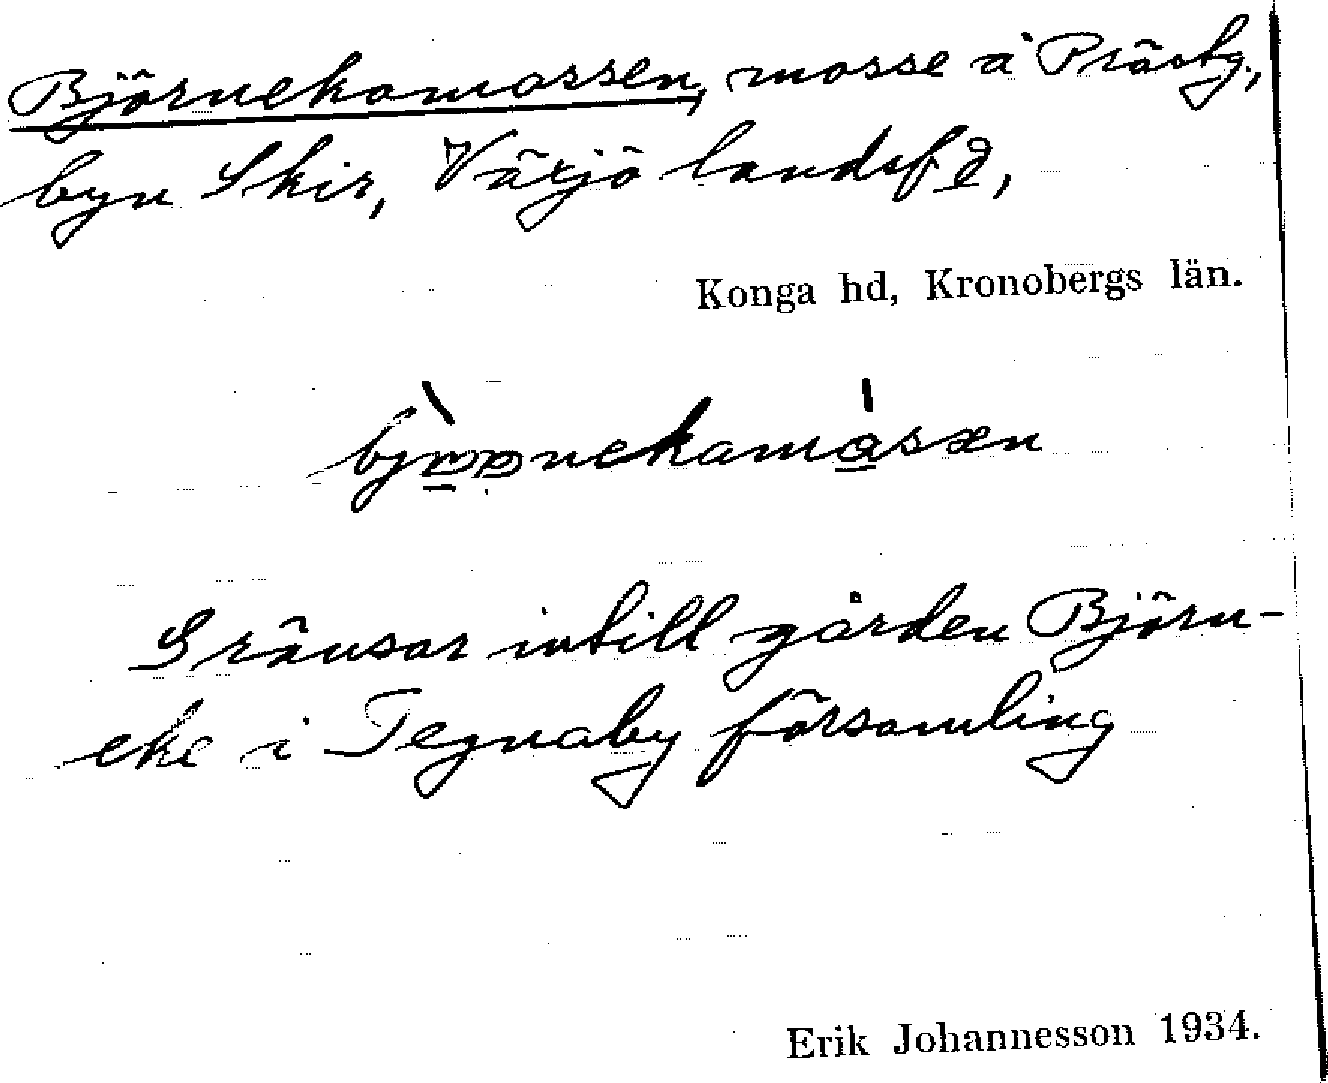 Björnekamossen, mosse å Prästg.,
byn Skir, Växjö landsf d,
Konga hd, Kronobergs län.
Gränsar intill gården Björn-
eke i Tegnaby församling
Erik Johannesson 1934.